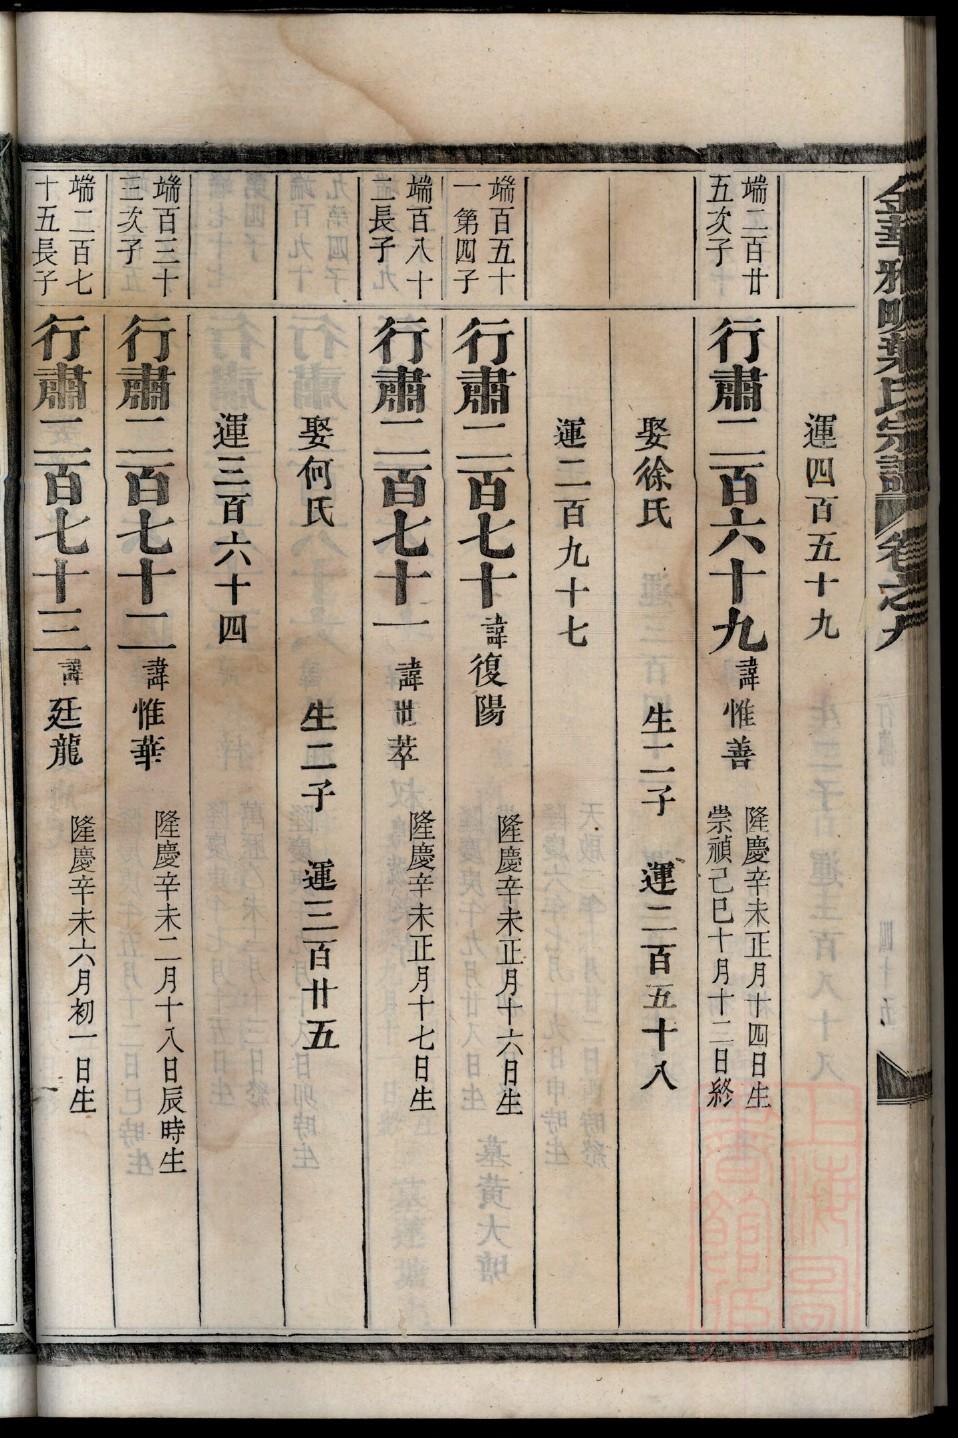 金華雅畈葉氏宗譜 卷之九
運四百五十九
端二百廿
五次子
行肅二百六十九 諱惟善 隆慶辛未正月廿四日生
崇禎己巳十月十二日終
娶徐氏 生二子 運二百五十八
運二百九十七
端百五十
一第四子
行肅二百七十 諱復陽 隆慶辛未正月十六日生
端百八十
二長子
行肅二百七十一 諱世萃 隆慶辛未正月十七日生
娶何氏 生二子 運三百廿五
運三百六十四
端百三十
三次子
行肅二百七十二 諱惟華 隆慶辛未二月十八日辰時生
端二百七
十五長子
行肅二百七十三 諱廷龍 隆慶辛未六月初一日生